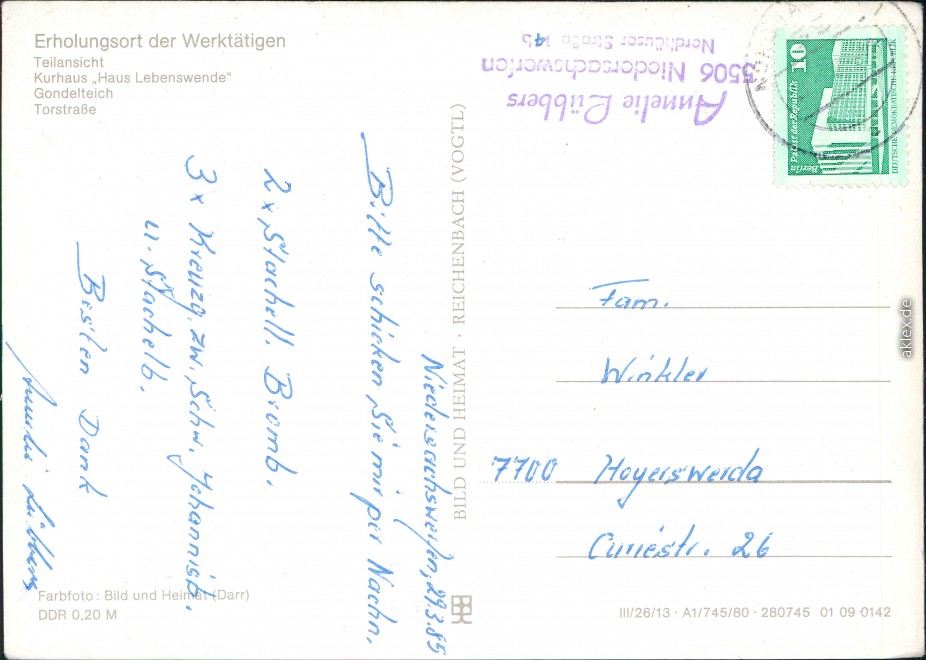 Erholungsort der Werktätigen
Teilansicht
Kurhaus „Haus Lebenswende“
Gondelteich
Torstraße
Annelie Lübbers
5506 Niedersachswerfen
Nordhäuser Straße 14b
10
Berlin Palast der Republik
DEUTSCHE DEMOKRATISCHE REPUBLIK
Niedersachswerfen, 29.3.85
Bitte schicken Sie mir per Nachn.
2x Stachell. Bromb.
3x Kreuzg. zw. Schw. Johannisb.
u. Stachelb.
Besten Dank
Annelie Lübbers
BILD UND HEIMAT · REICHENBACH (VOGTL)
Fam.
Winkler
7700 Hoyerswerda
Curiestr. 26
Farbfoto: Bild und Heimat (Darr)
DDR 0,20 M
III/26/13 · A1/745/80 · 280745 01 09 0142
aklex.de